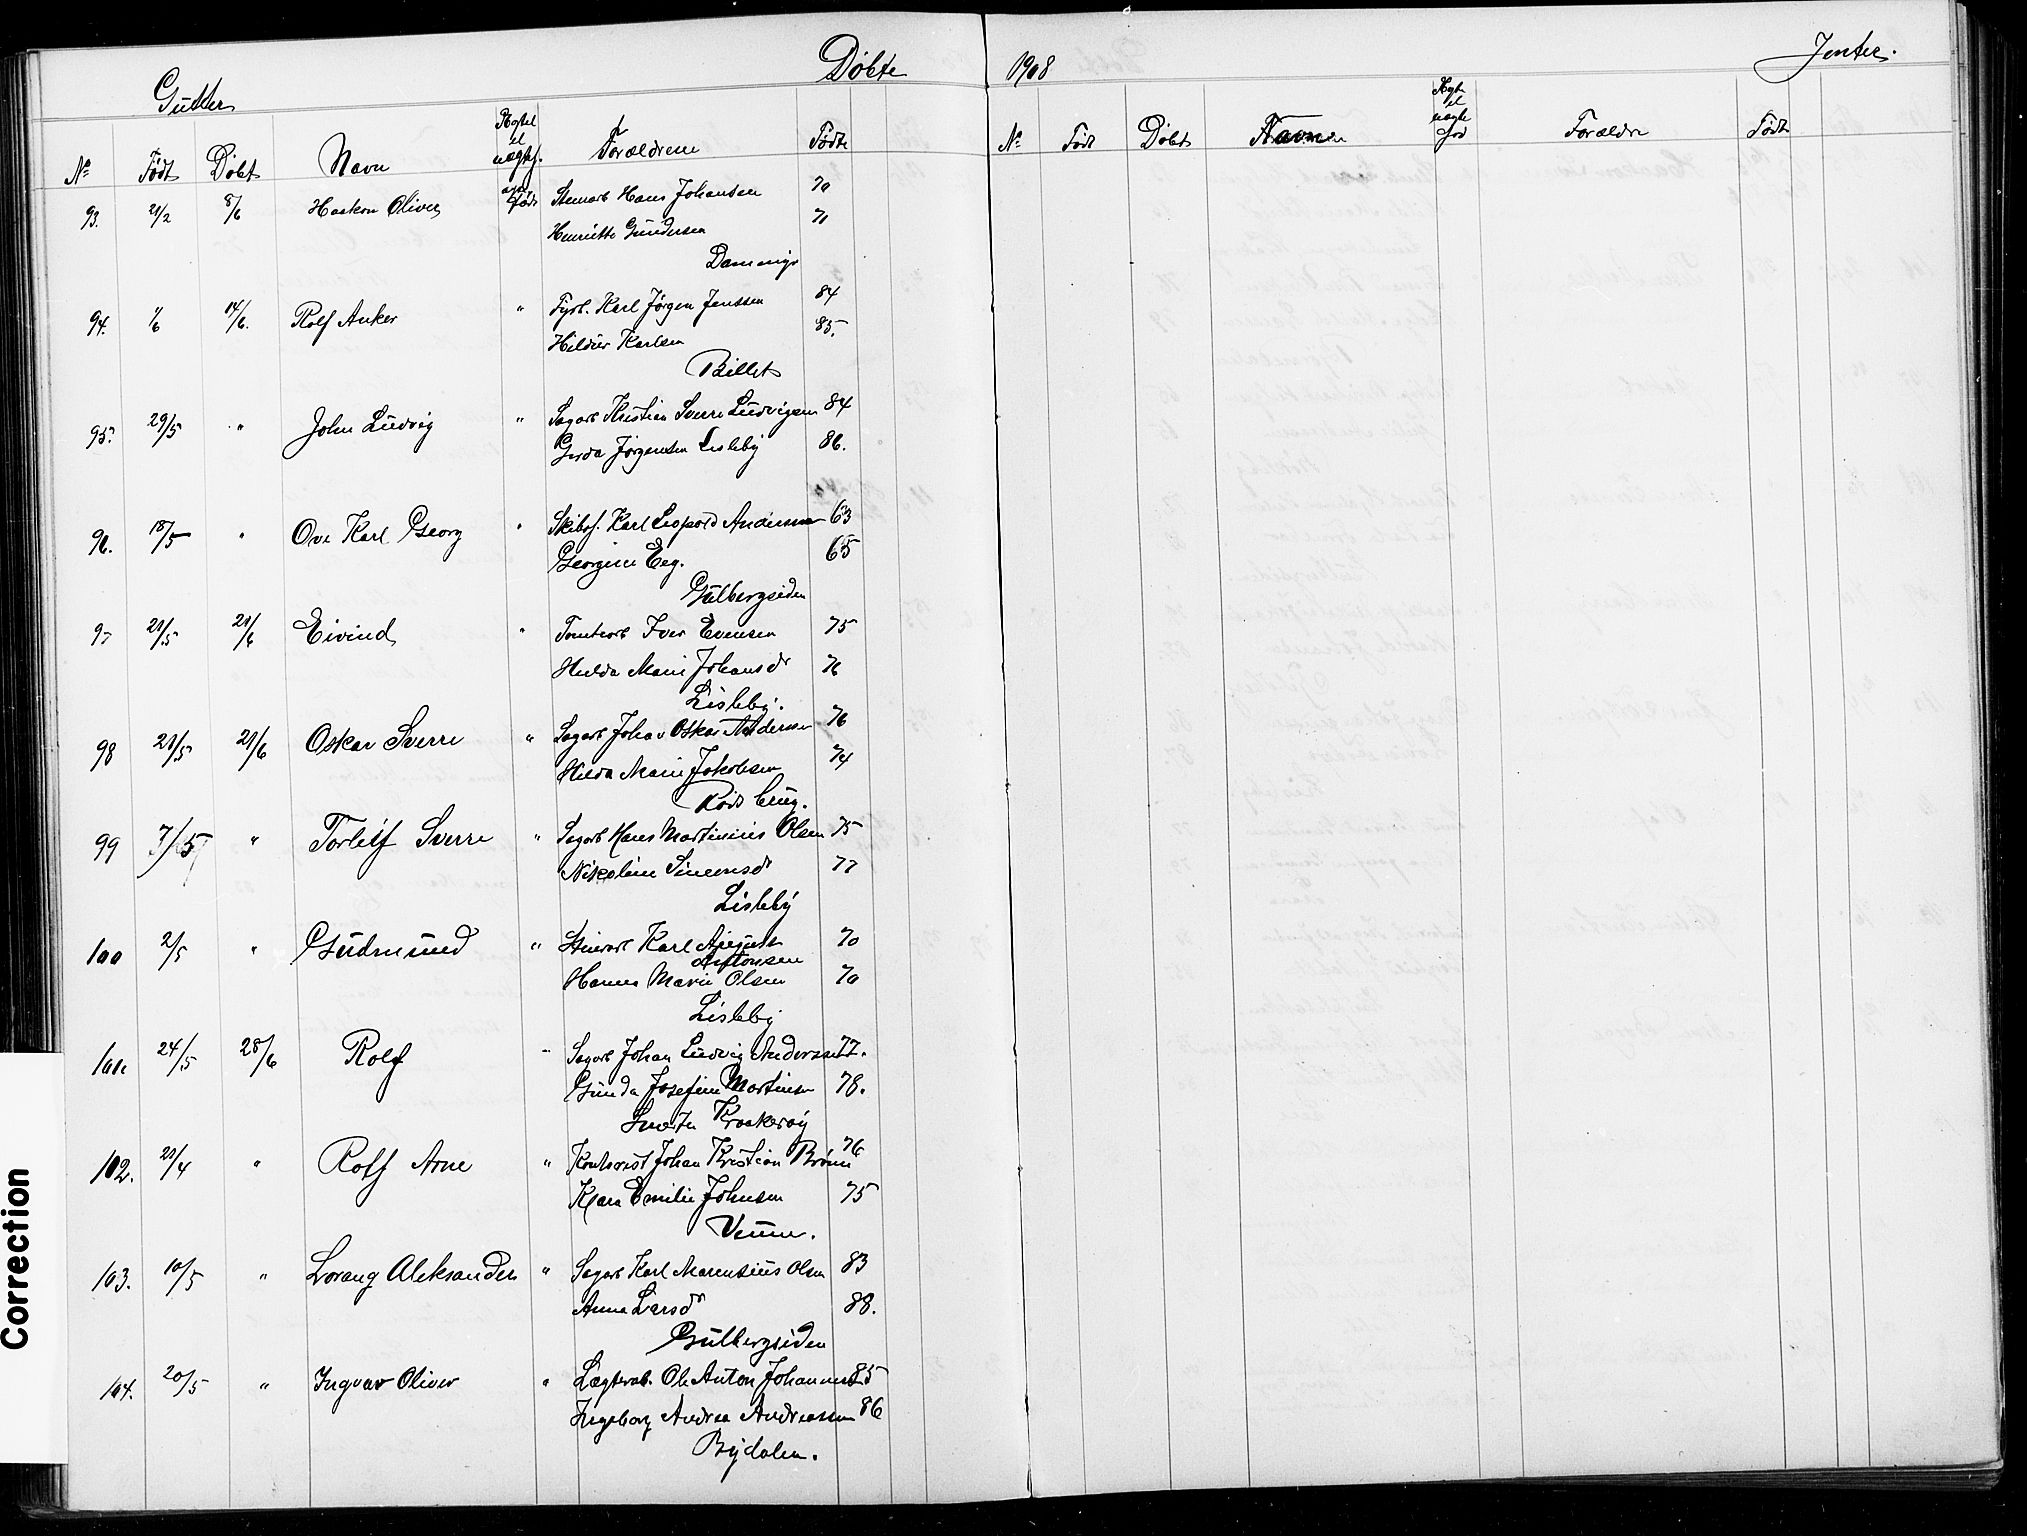 Døbte 1908
Gutter
Jenter.
No Født Døbt Navn Ægtef. Forældrene Fødte
No Født Døbt Navn Forældre Født
93. 21/2 8/6 Haakon Oliver Stenarb Hans Johansen 70
Henriette Gundersen 71
94. 1/6 14/6. Rolf Anker " Fyrb. Karl Jørgen Jenssen 84
Karlsen 85.
Billet
95. 29/5 " John Ludvig " Sagarb Kristian Sverre Ludvigsen 84
Gerda Jørgensen Lisleby 86.
96. 18/5 " Ove Karl Georg " Skibsf. Karl Leopold Andersen 63
Georgine Eeg. 65
Gulbergsiden
97 21/5 21/6 Eivind " Tomtearb Iver Evensen 75
Hulda Marie Johansdr 76
Lisleby.
98 21/5 21/6 Oskar Sverre " Sagarb Johan Oskar Andersen 76
Hilda Marie Jakobsen 74
99 7/5 " Torleif Sverre " Sagarb Hans Martinius Olsen 75
Nikoline Simensdr 77
Lisleby
100 2/5 " Gudmund " Stenarb Karl August 70
Antonsen
Hanna Marie Olsen 70
Lisleby
101. 24/5 28/6 Rolf " Sagarb Johan Ludvig Anderssen 77.
Gunda Josefine Martinsen 78.
Kraakerøy
102. 21/4 " Rolf Arne " Kontorist Johan Kristian 76
Klara Emilie Johnsen 75
Veum.
103. 10/5 " Lorang Aleksander " Sagarb Karl Marensius Olsen 83
Anna Larsdr 88.
Gulbergsiden
104. 20/5 " Ingvar Oliver " Lægterarb. Ole Anton Johannes 85
Ingeborg Andrea Andreassen 86
Bydalen.
Correction